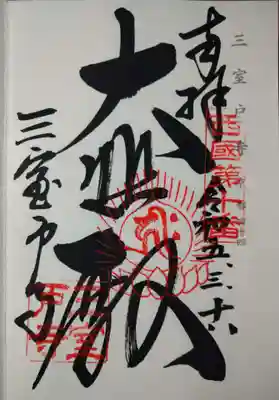 奉拝
令和五、三、十六
西國第十番
大悲殿
三室戸寺
三室戸寺